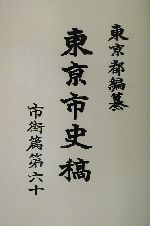 東京都編纂
東京市史稿
市街篇第六十